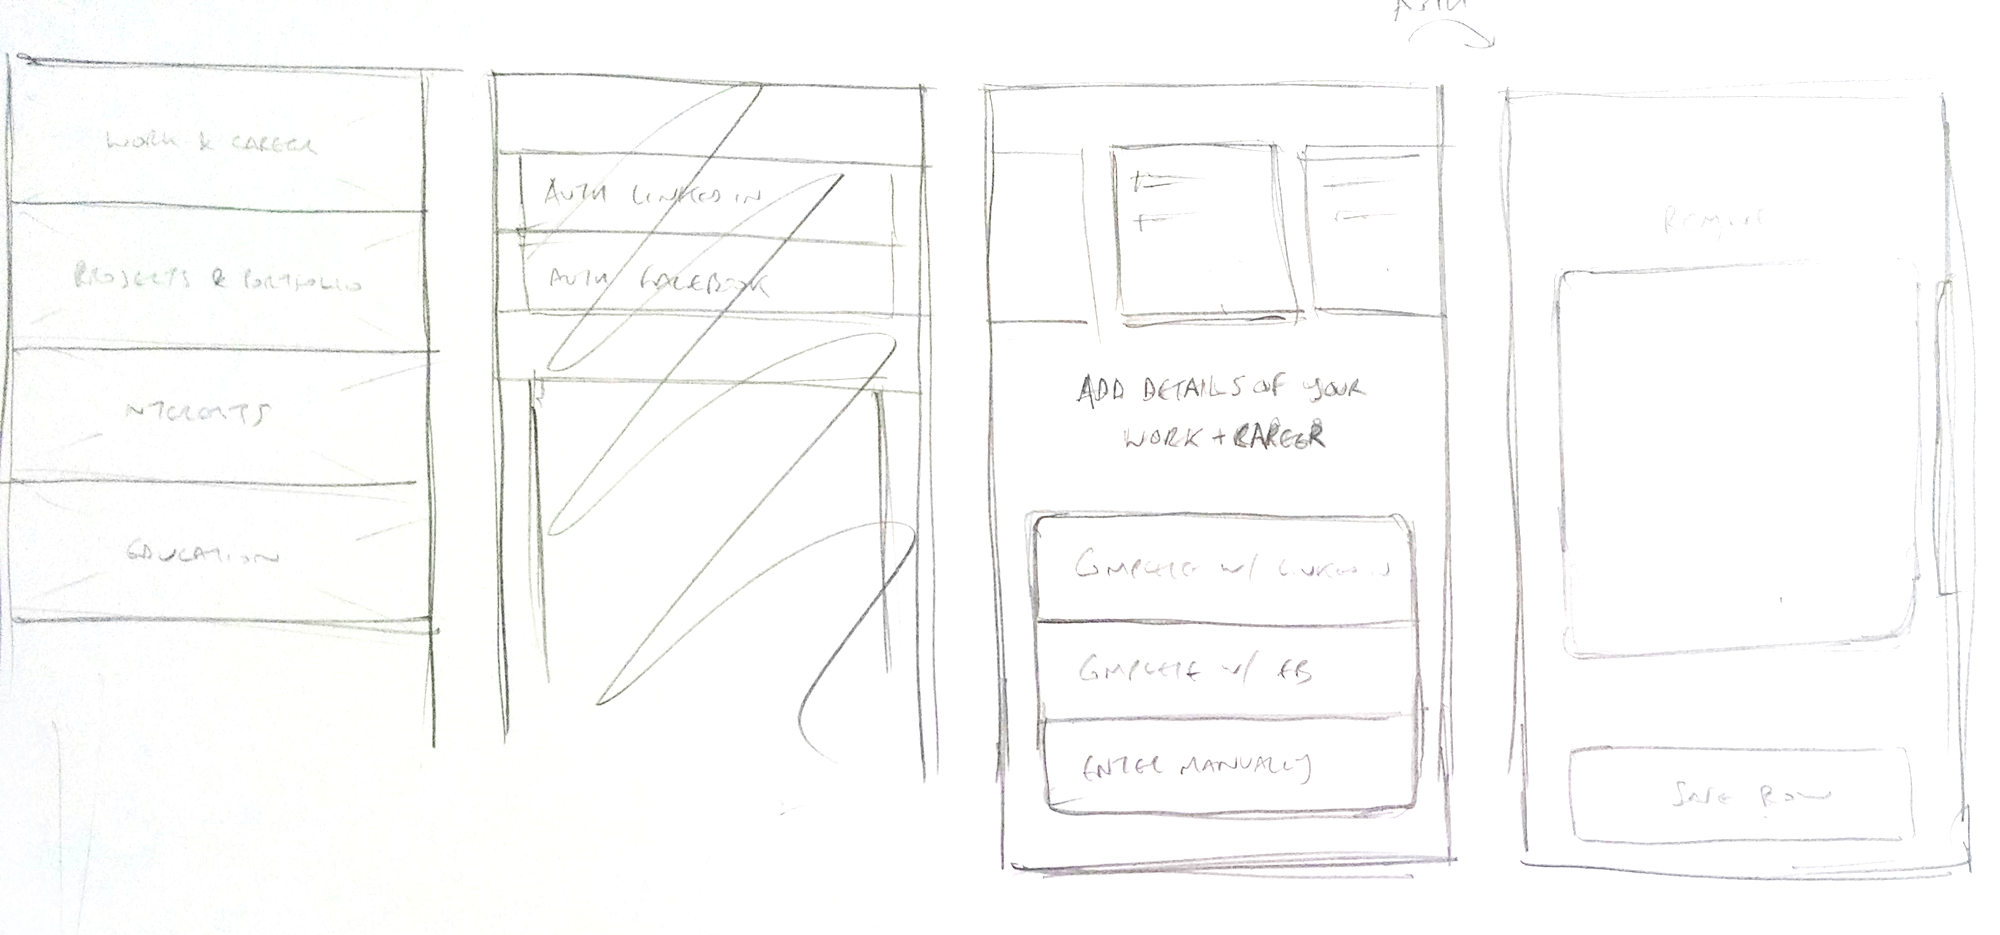 WORK & CAREER
PROJECTS & PORTFOLIO
INTERESTS
EDUCATION
AUTH LINKEDIN
AUTH FACEBOOK
ADD DETAILS OF YOUR
WORK + CAREER
COMPLETE W/ LINKEDIN
COMPLETE W/ FB
ENTER MANUALLY
SAVE ROW